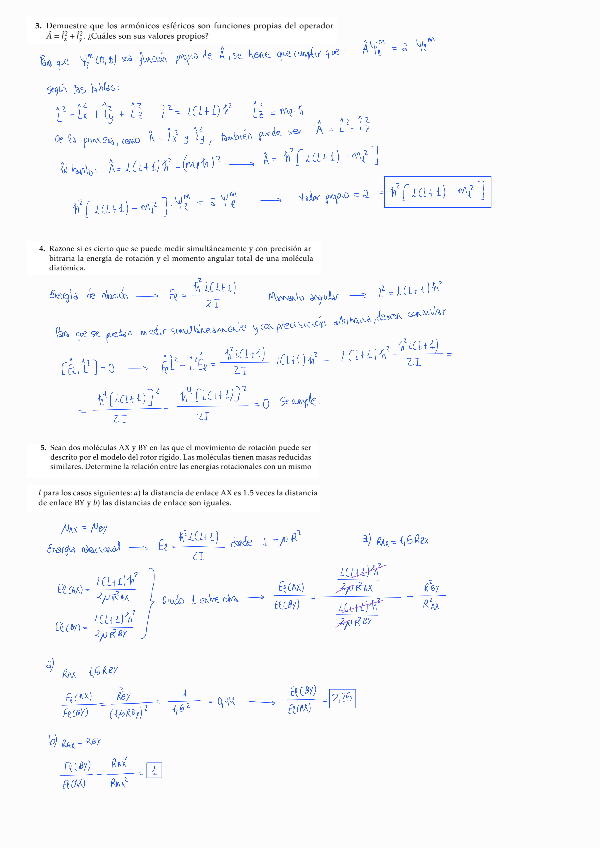 3. Demuestre que los armónicos esféricos son funciones propias del operador
Â = l̂²ₓ + l̂²ᵧ. ¿Cuáles son sus valores propios?
Para que Ψₗᵐ(θ,φ) sea función propia de Â, se tiene que cumplir que ÂΨₗᵐ = a Ψₗᵐ
según las tablas:
L̂² = L̂ₓ² + L̂ᵧ² + L̂z² l² = l(l+1)ħ² L̂z = mₗ·ħ
De la primera, como Â = l̂ₓ² y l̂ᵧ², también puede ser Â = L̂² - L̂z²
Por tanto: Â = l(l+1)ħ² - (mₗħ)² ⟶ Â = ħ² [l(l+1) - mₗ²]
ħ² [l(l+1) - mₗ²]·Ψₗᵐ = a Ψₗᵐ ⟶ Valor propio = a = ħ² [l(l+1) - mₗ²]
4. Razone si es cierto que se puede medir simultáneamente y con precisión ar
bitraria la energía de rotación y el momento angular total de una molécula
diatómica.
Energía de rotación ⟶ Eₗ = ħ² l(l+1) / 2I Momento angular ⟶ l² = l(l+1)ħ²
Para que se puedan medir simultáneamente y con precisión arbitraria, deben conmutar
[Êₗ, l̂²] = 0 ⟶ Êₗ l̂² - l̂² Êₗ = ħ² l(l+1) / 2I · l(l+1)ħ² - l(l+1)ħ² · ħ² l(l+1) / 2I =
= ħ⁴ [l(l+1)]² / 2I - ħ⁴ [l(l+1)]² / 2I = 0 Se cumple.
5. Sean dos moléculas AX y BY en las que el movimiento de rotación puede ser
descrito por el modelo del rotor rígido. Las moléculas tienen masas reducidas
similares. Determine la relación entre las energías rotacionales con un mismo
l para los casos siguientes: a) la distancia de enlace AX es 1.5 veces la distancia
de enlace BY y b) las distancias de enlace son iguales.
μAX = μBY
Energía rotacional ⟶ Eₗ = ħ² l(l+1) / 2I donde I = μR² a) RAX = 1,5 RBX
Eₗ(AX) = l(l+1)ħ² / 2μR²AX
Eₗ(BY) = l(l+1)ħ² / 2μR²BY
Divido 1 entre otra ⟶ Eₗ(AX) / Eₗ(BY) = (l(l+1)ħ² / 2μR²AX) / (l(l+1)ħ² / 2μR²BY) = R²BY / R²AX
a) RAX = 1,5 RBY
Eₗ(AX) / Eₗ(BY) = R²BY / (1,5RBY)² = 1 / 1,5² = 0,44 ⟶ Eₗ(BY) / Eₗ(AX) = 2,25
b) RAX = RBY
Eₗ(BY) / Eₗ(AX) = RAX² / RAX² = 1